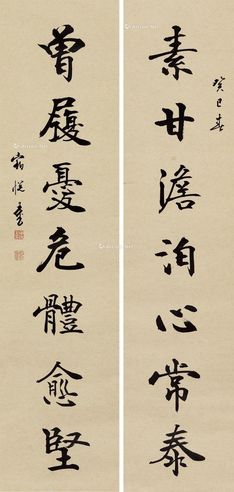 癸巳春
素甘澹泊心常泰
曾履憂危體愈堅